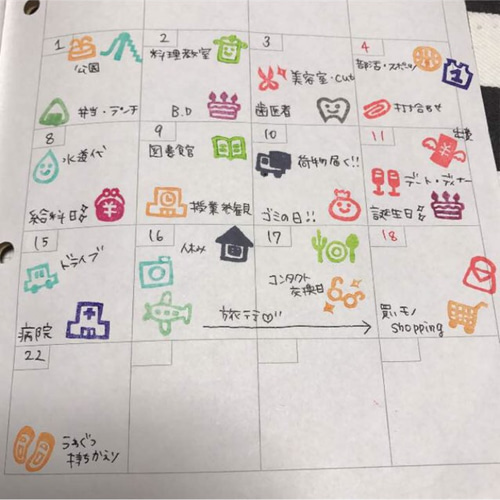 1
公園
弁当・ランチ
2
料理教室
B.D
3
美容室・Cut
歯医者
4
部活・スポーツ
打ち合せ
8
水道代
¥
給料日
9
図書館
授業参観
10
荷物届く!!
ゴミの日!!
11
出費
¥
デート・ディナー
誕生日
15
ドライブ
病院
16
休み
17
コンタクト
交換日
旅行♡!!
18
買いモノ
shopping
22
うわぐつ
持ちかえり